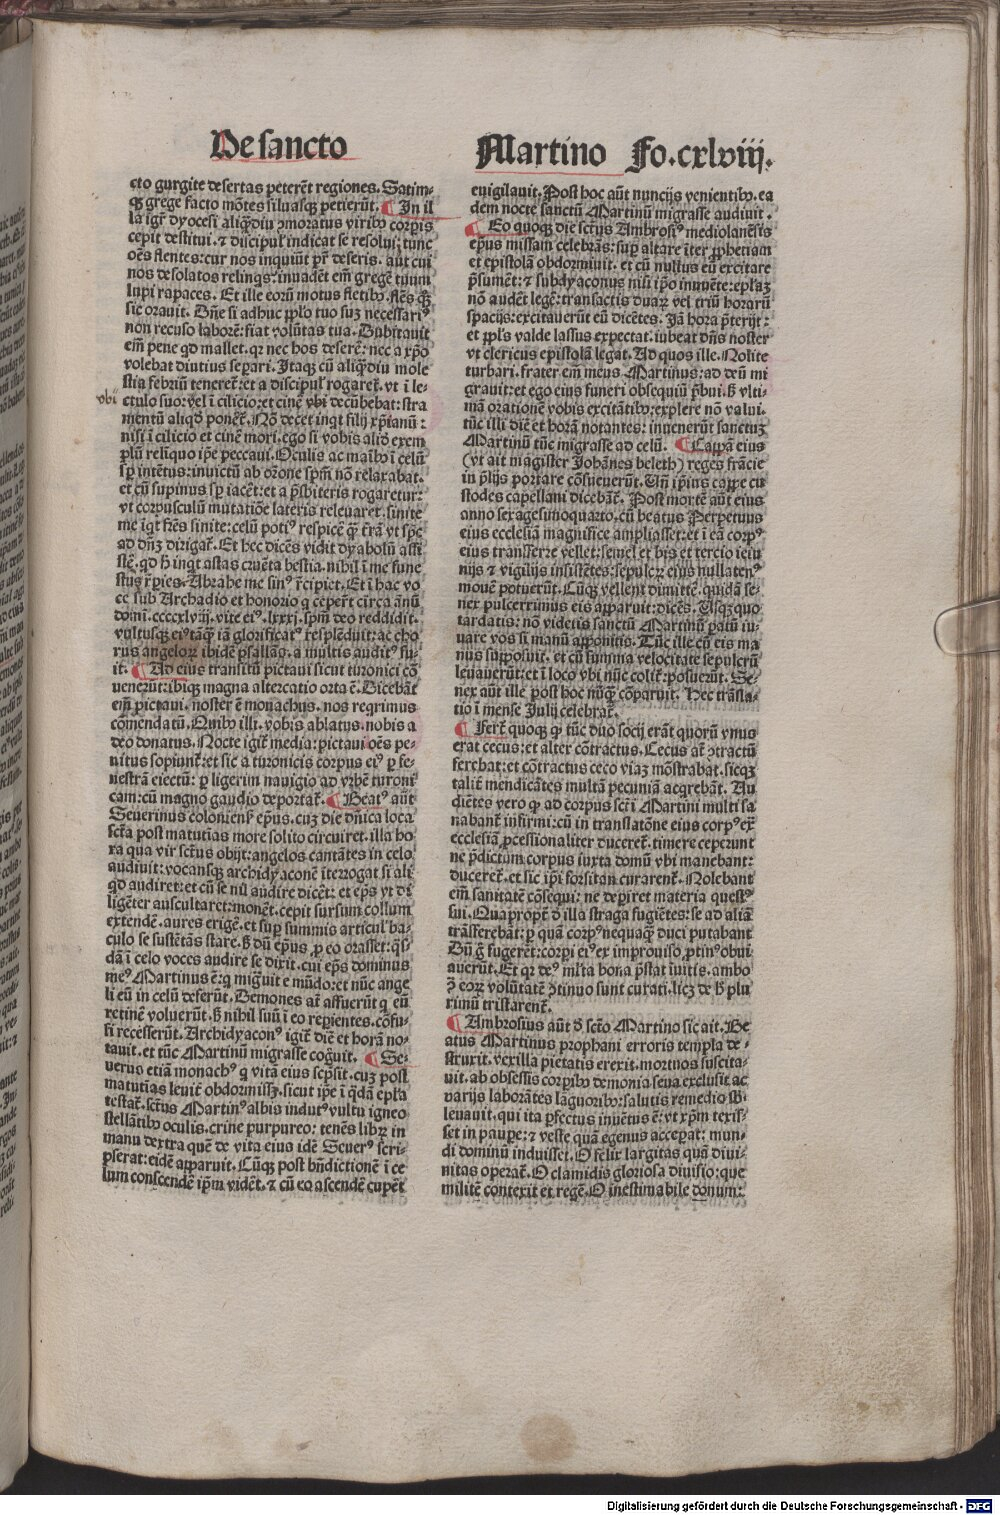 De sancto
Martino Fo.cxlviij.
cto gurgite desertas peterēt regiones. Satim⸗
qꝫ grege facto mōtes siluasqꝫ petierūt. ¶ In il
la igr̄ dyocesi aliqͣdiu ꝯmoratus viribꝰ corpis
cepit destitui. ⁊ discipul' indicat se resolui; tunc
oēs flentes: cur nos inquiūt pr̄ deseris. aut cui
nos desolatos relinqs: inuadēt em̄ gregē tuum
lupi rapaces. Et ille eorū motus fletibꝰ. flēs qꝫ
sic orauit. Dn̄e si adhuc pplo tuo suꝫ necessariꝰ
non recuso laborē: fiat volūtas tua. Dubitauit
em̄ pene qd mallet. qr nec hos deserē: nec a xp̄o
volebat diutius separi. Itaqꝫ cū aliqͣdiu mole
stia febriū teneret̄: et a discipul' rogaret̄. vt ī le⸗
vbi
ctulo suo: vel ī cilicio: et cinē vbi decūbebat: stra
mentū aliqd ponet̄. Nō decet inqt filij xp̄ianū:
nisi ī cilicio et cinē mori. ego si vobis aliō exem
plū reliquo ip̄e peccaui. Oculis ac maibꝰ ī celū
sp intētus: inuictū ab orōne spm̄ nō relaxabat.
et cū supinus sp iacēt: et a p̄sbiteris rogaretur:
vt corpusculū mutatiōe lateris releuaret. sinite
me igt̄ fr̄es sinite: celū potiꝰ respicē qꝫ t̄rā vt sp̄s
ad dn̄ꝫ dirigat̄. Et hec dicēs vidit dyabolū assi
stē. qd h̄ inqt astas cruēta bestia. nihil ī me fune
stus r̄pies. Abrahe me sinꝰ r̄cipiet. Et ī hac vo
ce sub Archadio et honorio q cepert̄ circa ānū
domī. ccccxlviij. vite eiꝰ. lxxxj. spm̄ deo reddidit.
vultusqꝫ eiꝰ tāqꝫ iā glorificatꝰ resplēduit: ac cho
rus angelorꝫ ibidē psallāo. a multis auditꝰ fu⸗
it. ¶ Ad eius transitū pictaui sicut turonici cō
uenerūt: ibiqꝫ magna altercatio orta ē. Dicebāt
em̄ pictaui. noster ē monachus. nos reqrimus
cōmendatū. Quibꝰ illi. vobis ablatus. nobis a
deo donatus. Nocte igit̄ media: pictaui oēs pe⸗
nitus sopiunt̄: et sic a turonicis corpus eiꝰ p fe⸗
nestrā eiectū: p ligerim nauigio ad vrbē turoni
cam: cū magno gaudio deportat̄. ¶ Beatꝰ aūt
Seuerinus coloniens̄ ep̄us. cuꝫ die dn̄ica loca
scta post matutias more solito circuiret. illa ho
ra qua vir sctus obijt: angelos cantātes in celo
audiuit: vocansqꝫ archidyaconē īterrogat si ali
qd audiret: et cū se nil audire dicet̄: et ep̄s vt di
ligēter auscultaret: monet̄. cepit sursum collum
extendē. aures erigē. et sup summis articul' ba⸗
culo se sustētās stare. s̄ dū ep̄us p eo orasset: qͣs⸗
dā ī celo voces audire se dixit. cui ep̄s dominus
meꝰ Martinus ē: q migͣuit e mūdo: et nūc ange
li eū in celū deferūt. Demones at̄ affuerūt q eū
retinē voluerūt. s̄ nihil suū ī eo repientes. cōfu⸗
si recesserūt. Archidyaconꝰ igit̄ diē et horā no⸗
tauit. et tūc Martinū migrasse cogͣuit. ¶ Se⸗
uerus etiā monachꝰ q vitā eius scp̄sit. cuꝫ post
matutias leuit̄ obdormissꝫ. sicut ip̄e ī qͣdā epl'a
testat̄. sctus Martinꝰ albis indutꝰ vultu igneo
stellātibꝰ oculis. crine purpureo: tenēs librꝫ in
manu dextra quē de vita eius idē Seuerꝰ scri⸗
pserat: eidē apparuit. Cūqꝫ post bn̄dictionē ī ce
lum conscendē ip̄m vidēt. ⁊ cū eo ascendē cupet̄
euigilauit. Post hoc aūt nuncijs venientibꝰ. ea
dem nocte sanctū Martinū migrasse audiuit.
¶ Eo quoqꝫ die sctus Ambrosiꝰ mediolanēsis
ep̄us missam celebrās: sup altare īter pphetiam
et epistolā obdormiuit. et cū nullus eū excitare
p̄sumēt: ⁊ subdyaconus nisi ipo inuēte: epl'aꝫ
nō audēt legē: transactis duarꝫ vel triū horarū
spacijs: excitauerūt eū dicētes. Iā hora p̄terijt:
et ppl's valde lassus expectat. iubeat dn̄s noster
vt clericus epistolā legat. Ad quos ille. Nolite
turbari. frater em̄ meus Martinus: ad deū mi
grauit: et ego eius funeri obsequiū p̄bui. s̄ vlti⸗
mā orationē vobis excitātibꝰ: explere nō valui.
tūc illi diē et horā notantes: inuenerūt sanctuꝫ
Martinū tūc migrasse ad celū. ¶ Cappā eius
(vt ait magister Johānes beleth) reges frācie
in p̄lijs portare cōsueuerūt. Vn̄ ip̄ius cappe cu
stodes capellani dicebāt̄. Post mortē aūt eius
anno sexagesimoquarto. cū beatus Perpetuus
eius ecclesiā magnifice ampliasset: et ī eā corpꝰ
eius transferre vellet: semel et bis et tercio ieiu
nijs ⁊ vigilijs insistētes: sepulcrꝫ eius nullatenꝰ
mouē potuerūt. Cūqꝫ vellent dimittē. quidā se⸗
nex pulcerrimus eis apparuit: dicēs. Usqꝫquo
tardatis: nō videtis sanctū Martinū patū iu⸗
uare vos si manū apponitis. Tūc ille cū eis ma
nus supposuit. et cū summa velocitate sepulcrū
leuauerūt: et ī loco vbi nūc colit̄: posuerūt. Se⸗
nex aūt ille post hoc nūqꝫ cōparuit. Hec trāsla⸗
tio ī mense Julij celebrat̄.
¶ Fert̄ quoqꝫ qꝫ tūc duo socij erāt quorū vnus
erat cecus: et alter cōtractus. Cecus at̄ ꝯtractū
ferebat: et cōtractus ceco viaꝫ mōstrabat. sicqꝫ
talit̄ mendicātes multā pecuniā acqrebāt. Au
diētes vero qꝫ ad corpus scti Martini multi sa
nabant̄ infirmi: cū in translatōne eius corpꝰ ex
ecclesiā pcessionaliter duceret̄. timere ceperunt
ne p̄dictum corpus iuxta domū vbi manebant:
duceret̄. et sic ip̄i forsitan curarent̄. Nolebant
em̄ sanitatē cōsequi: ne depiret materia questꝰ
sui. Quapropt̄ ō illa straga fugiētes: se ad aliā
trāsferebāt: p quā corpꝰ nequaqꝫ duci putabant
Dū ḡ fugerēt: corpi eiꝰ ex improuiso ptinꝰ obui
auerūt. Et qr deꝰ ml'ta bona p̄stat inuitis. ambo
ꝯ eorꝫ volūtatē ꝯtinuo sunt curati. licꝫ de h̄ plu
rimū tristarent̄.
¶ Ambrosius aūt ō scto Martino sic ait. Be
atus Martinus prophani erroris templa de⸗
struxit. vexilla pietatis erexit. mortuos suscita⸗
uit. ab obsessis corpibꝰ demonia seua exclusit. ac
varijs laborātes lāguoribꝰ: salutis remedio sb⸗
leuauit. qui ita pfectus inuētus ē: vt xp̄m texis⸗
set in paupe: ⁊ veste quā egenus accepat: mun⸗
di dominū induisset. O felix largitas qua diui⸗
nitas operat̄. O clamidis gloriosa diuisio: que
militē contexit et regē. O inestimabile donum:
Digitalisierung gefördert durch die Deutsche Forschungsgemeinschaft - DFG